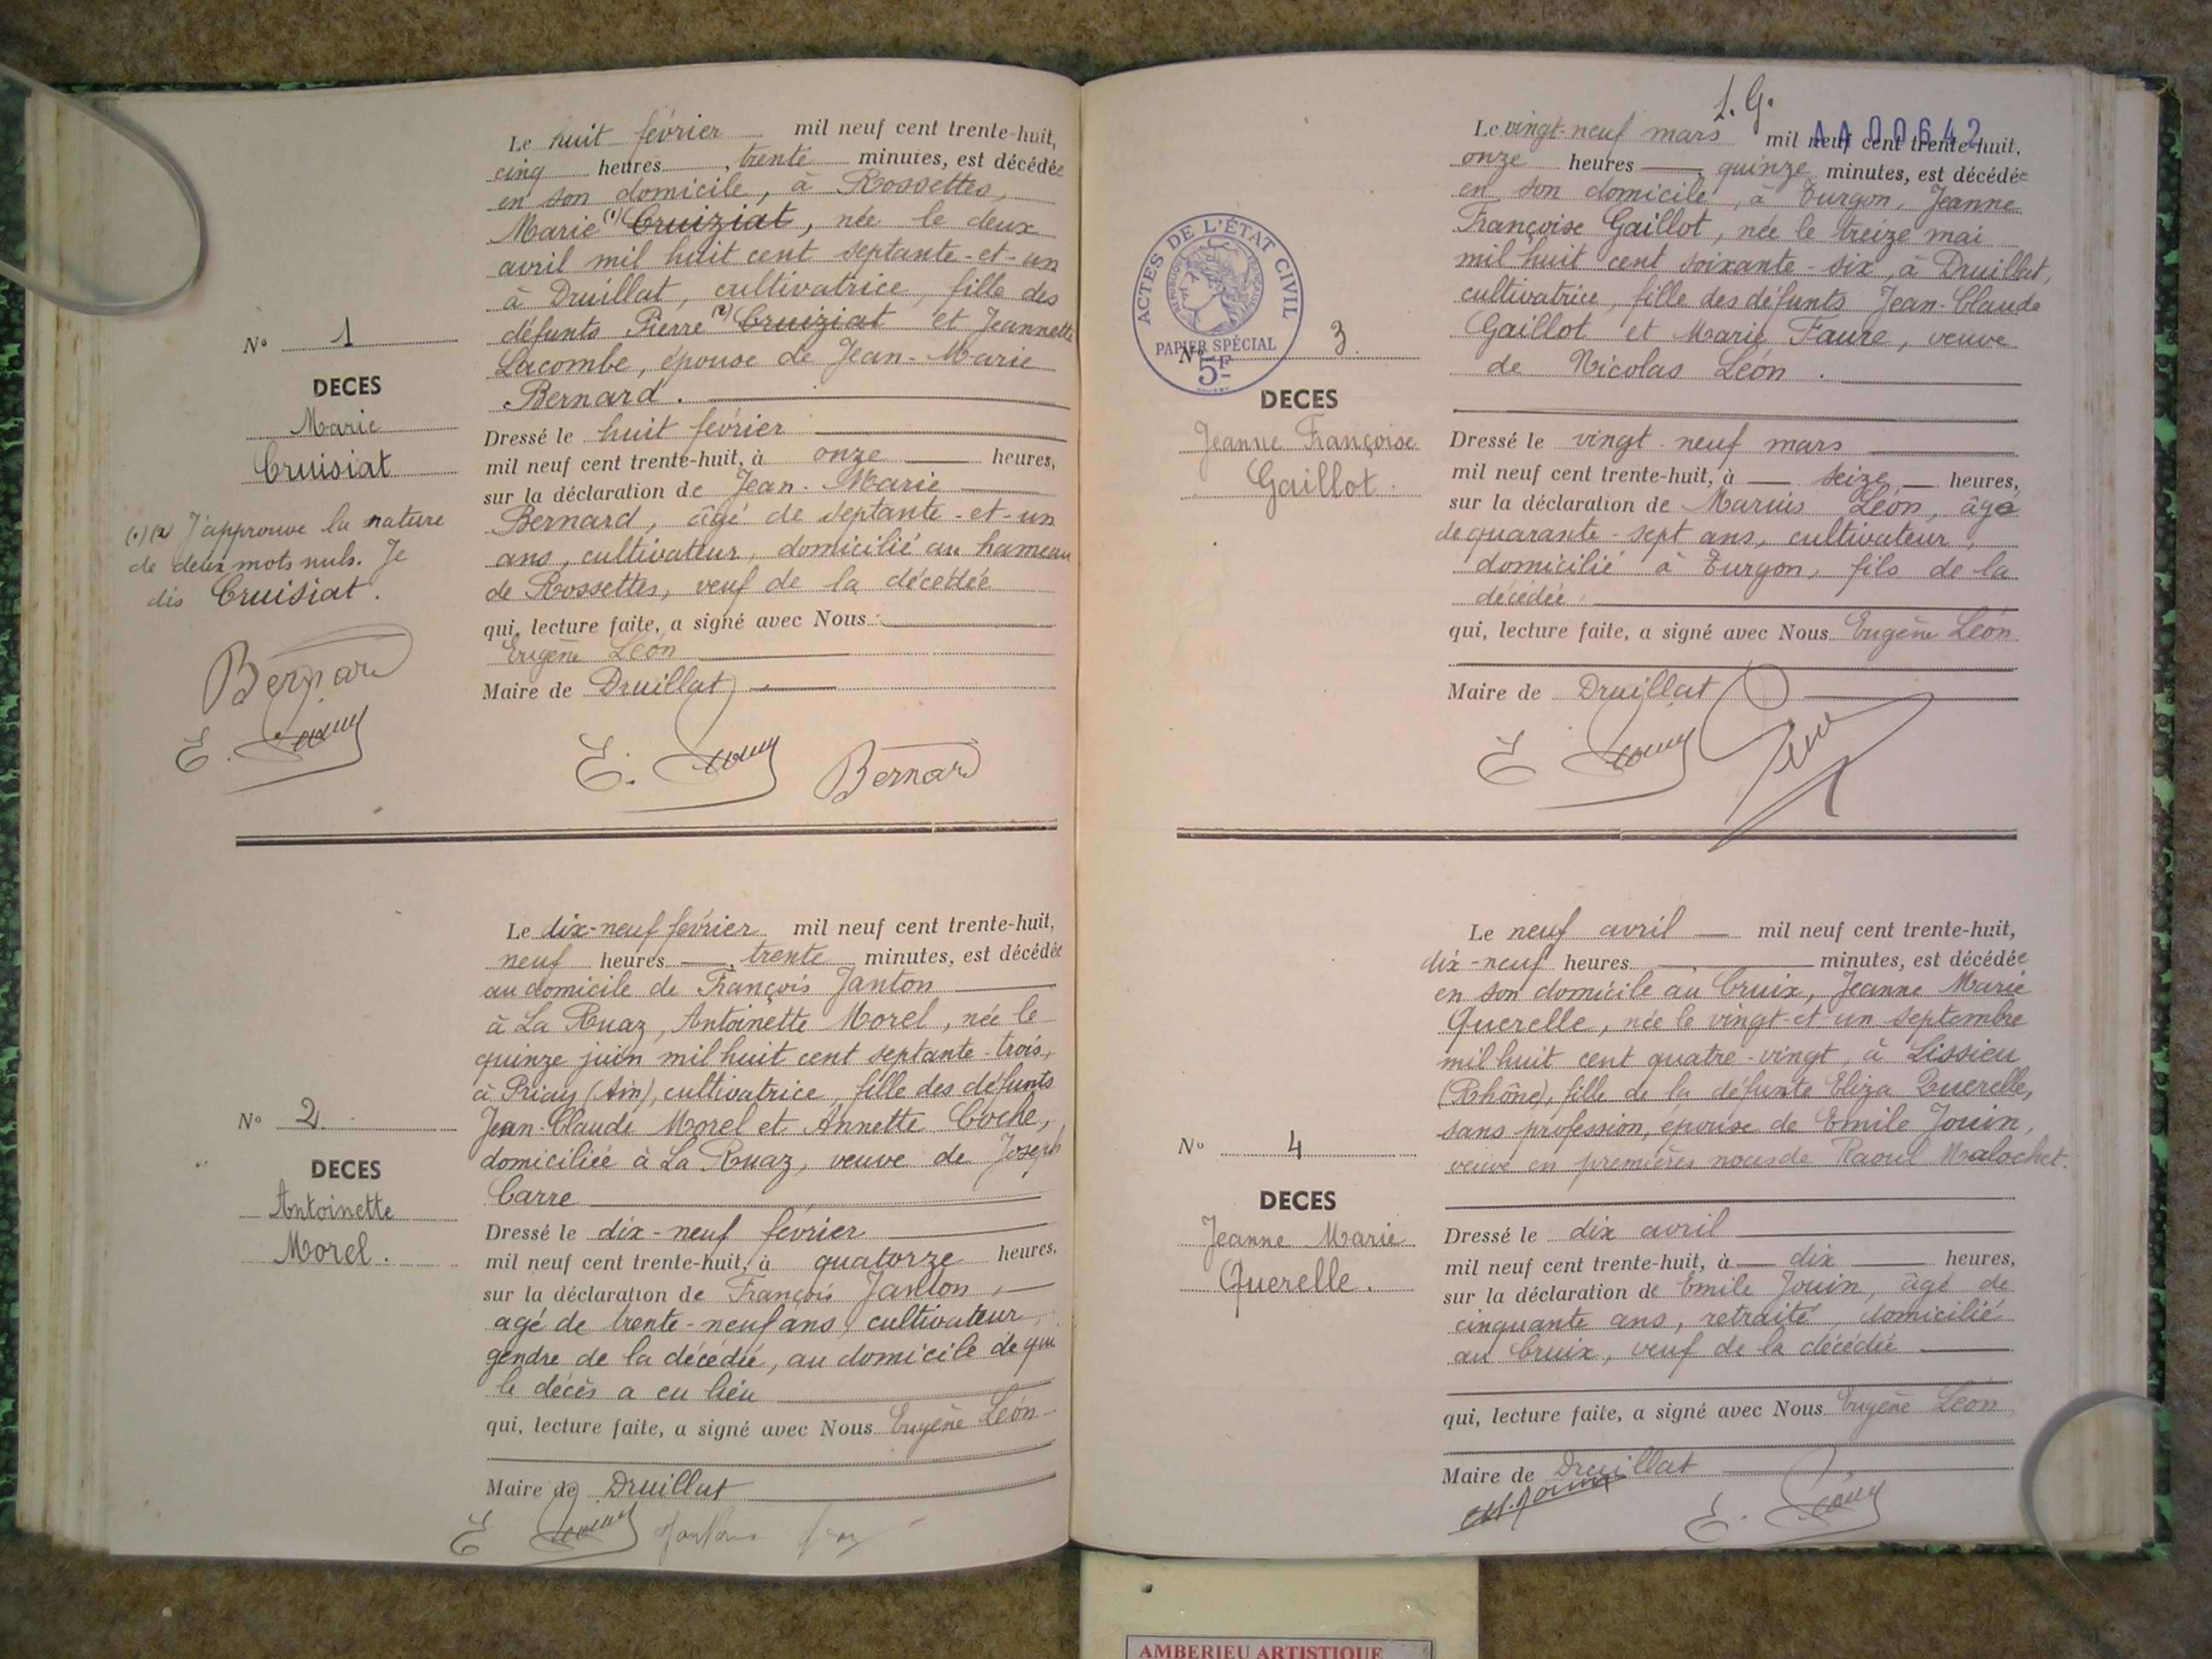 Le huit février mil neuf cent trente-huit,
cinq heures, trente minutes, est décédée
en son domicile, à Rossettes,
Marie (1) Cruiziat, née le deux
avril mil huit cent septante-et-un
à Druillat, cultivatrice, fille des
défunts Pierre (2) Cruiziat et Jeannette
Lacombe, épouse de Jean-Marie
Bernard.
N° 1
DECES
Marie
Cruisiat
(1) (2) J'approuve la rature
de deux mots nuls. Je
dis Cruisiat.
Bernard
E. Léon
Dressé le huit février
mil neuf cent trente-huit, à onze heures,
sur la déclaration de Jean-Marie
Bernard, âgé de septante-et-un
ans, cultivateur, domicilié au hameau
de Rossettes, veuf de la décédée
qui, lecture faite, a signé avec Nous
Eugène Léon
Maire de Druillat
E. Léon Bernard
Le dix-neuf février mil neuf cent trente-huit,
neuf heures, trente minutes, est décédée
au domicile de François Janton
à La Ruaz, Antoinette Morel, née le
quinze juin mil huit cent septante-trois,
à Priay (Ain), cultivatrice, fille des défunts
Jean-Claude Morel et Annette Coche,
domiciliée à La Ruaz, veuve de Joseph
Carre
N° 2.
DECES
Antoinette
Morel.
Dressé le dix-neuf février
mil neuf cent trente-huit, à quatorze heures,
sur la déclaration de François Janton,
agé de trente-neuf ans, cultivateur,
gendre de la décédée, au domicile de qui
le décès a eu lieu
qui, lecture faite, a signé avec Nous Eugène Léon
Maire de Druillat
E Léon
L. G.
AA00642
Le vingt-neuf mars mil neuf cent trente-huit,
onze heures, quinze minutes, est décédée
en son domicile, à Turgon, Jeanne
Françoise Gaillot, née le treize mai
mil huit cent soixante-six, à Druillat,
cultivatrice, fille des défunts Jean-Claude
Gaillot et Marie Faure, veuve
de Nicolas Léon.
ACTES DE L'ÉTAT CIVIL
RÉPUBLIQUE FRANÇAISE
PAPIER SPÉCIAL
5F
N° 3.
DECES
Jeanne Françoise
Gaillot.
Dressé le vingt-neuf mars
mil neuf cent trente-huit, à seize heures,
sur la déclaration de Marius Léon, âgé
de quarante-sept ans, cultivateur,
domicilié à Turgon, fils de la
décédée
qui, lecture faite, a signé avec Nous Eugène Léon
Maire de Druillat
E Léon
Le neuf avril mil neuf cent trente-huit,
dix-neuf heures minutes, est décédée
en son domicile au Cruix, Jeanne Marie
Querelle, née le vingt-et un septembre
mil huit cent quatre-vingt, à Lissieu
(Rhône), fille de la défunte Eliza Querelle,
sans profession, épouse de Emile Jouin,
veuve en premières noces de Raoul Malochet.
N° 4
DECES
Jeanne Marie
Querelle.
Dressé le dix avril
mil neuf cent trente-huit, à dix heures,
sur la déclaration de Emile Jouin, âgé de
cinquante ans, retraité, domicilié
au Cruix, veuf de la décédée
qui, lecture faite, a signé avec Nous Eugène Léon
Maire de Druillat
E. Léon
AMBERIEU ARTISTIQUE